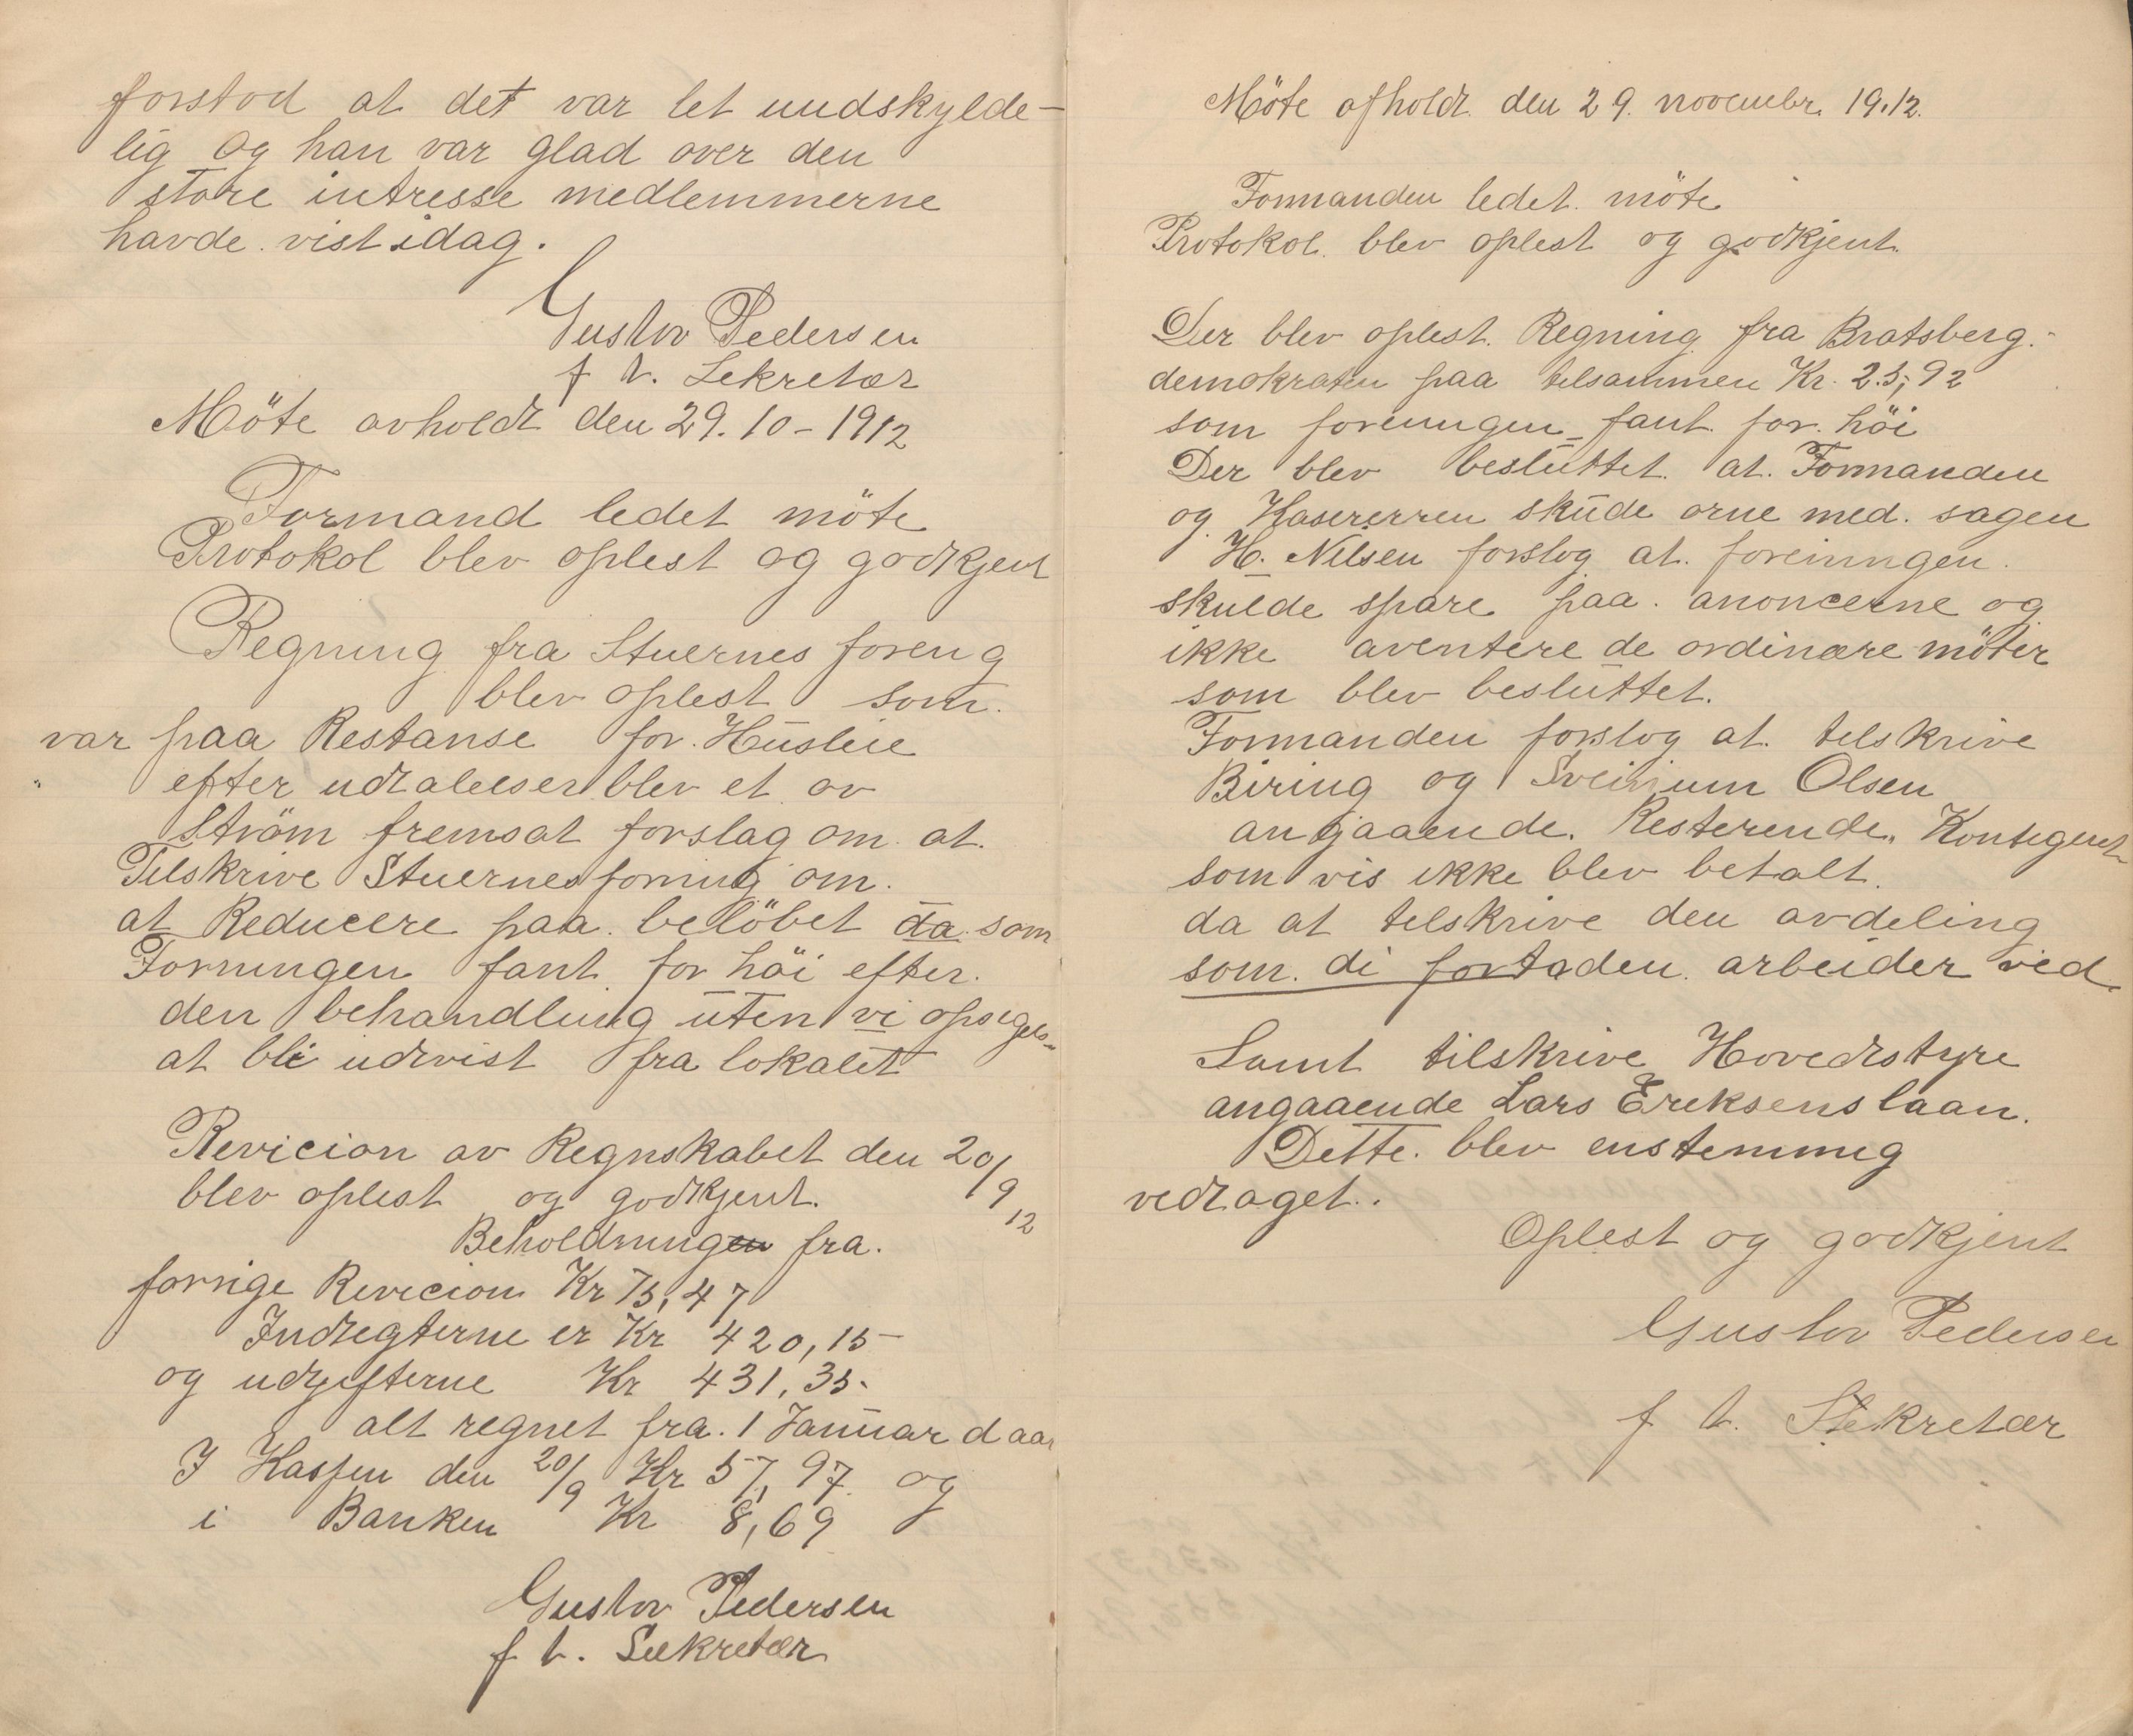 forstod at det var let undskylde-
lig og han var glad over den
store intresse medlemmerne
havde vist idag.
Gustav Pedersen
f t. Sekretær
Möte avholdt den 29. 10 - 1912
Formand ledet möte
Protokol blev oplest og godkjent
Regning fra Stuernes foreng
blev oplest som.
var paa Restanse for. Husleie
efter udtalelser blev et av
Ström fremsat forslag om at.
Tilskrive Stuernes forning om.
at Reducere paa belöbet da som
Forningen fant for höi efter.
den behandling uten vi opsigels-
at bli udvist fra lokalet
Revicion av Regnskabet den 20/9 12
blev oplest og godkjent.
Beholdningen fra.
forrige Revicion Kr 75,47
Indtegterne er Kr 420,15-
og udgifterne Kr 431,35-
alt regnet fra. 1 Januar d aar
I Kassen den 20/9 Kr 57,97 og
i Banken Kr 8,69
Gustav Pedersen
f t. Sekretær
Möte afholdt den 29. novembr. 19.12.
Formanden ledet möte
Protokol. blev oplest og godkjent.
Der blev oplest. Regning fra Bratsberg-
demokraten paa tilsammen Kr. 25,92
som foreningen fant for. höi
Der blev besluttet. at. Formanden
og Kasererren skude orne med. sagen
H. Nilsen forslog at. foreningen.
skulde spare paa. anoncerne og
ikke aventere de ordinære möter
som blev besluttet.
Formanden forslog at tilskrive
Biring og Olsen
angjaaende. Resterende. Kontigent
som vis ikke blev betalt.
da at tilskrive den avdeling
som. di fortaden. arbeider ved.
Samt tilskrive Hovedstyre
angaaende Lars Ereksens laan.
Dette. blev enstemmig
vedtaget..
Oplest og godkjent
Gustav Pedersen
f t. Sekretær